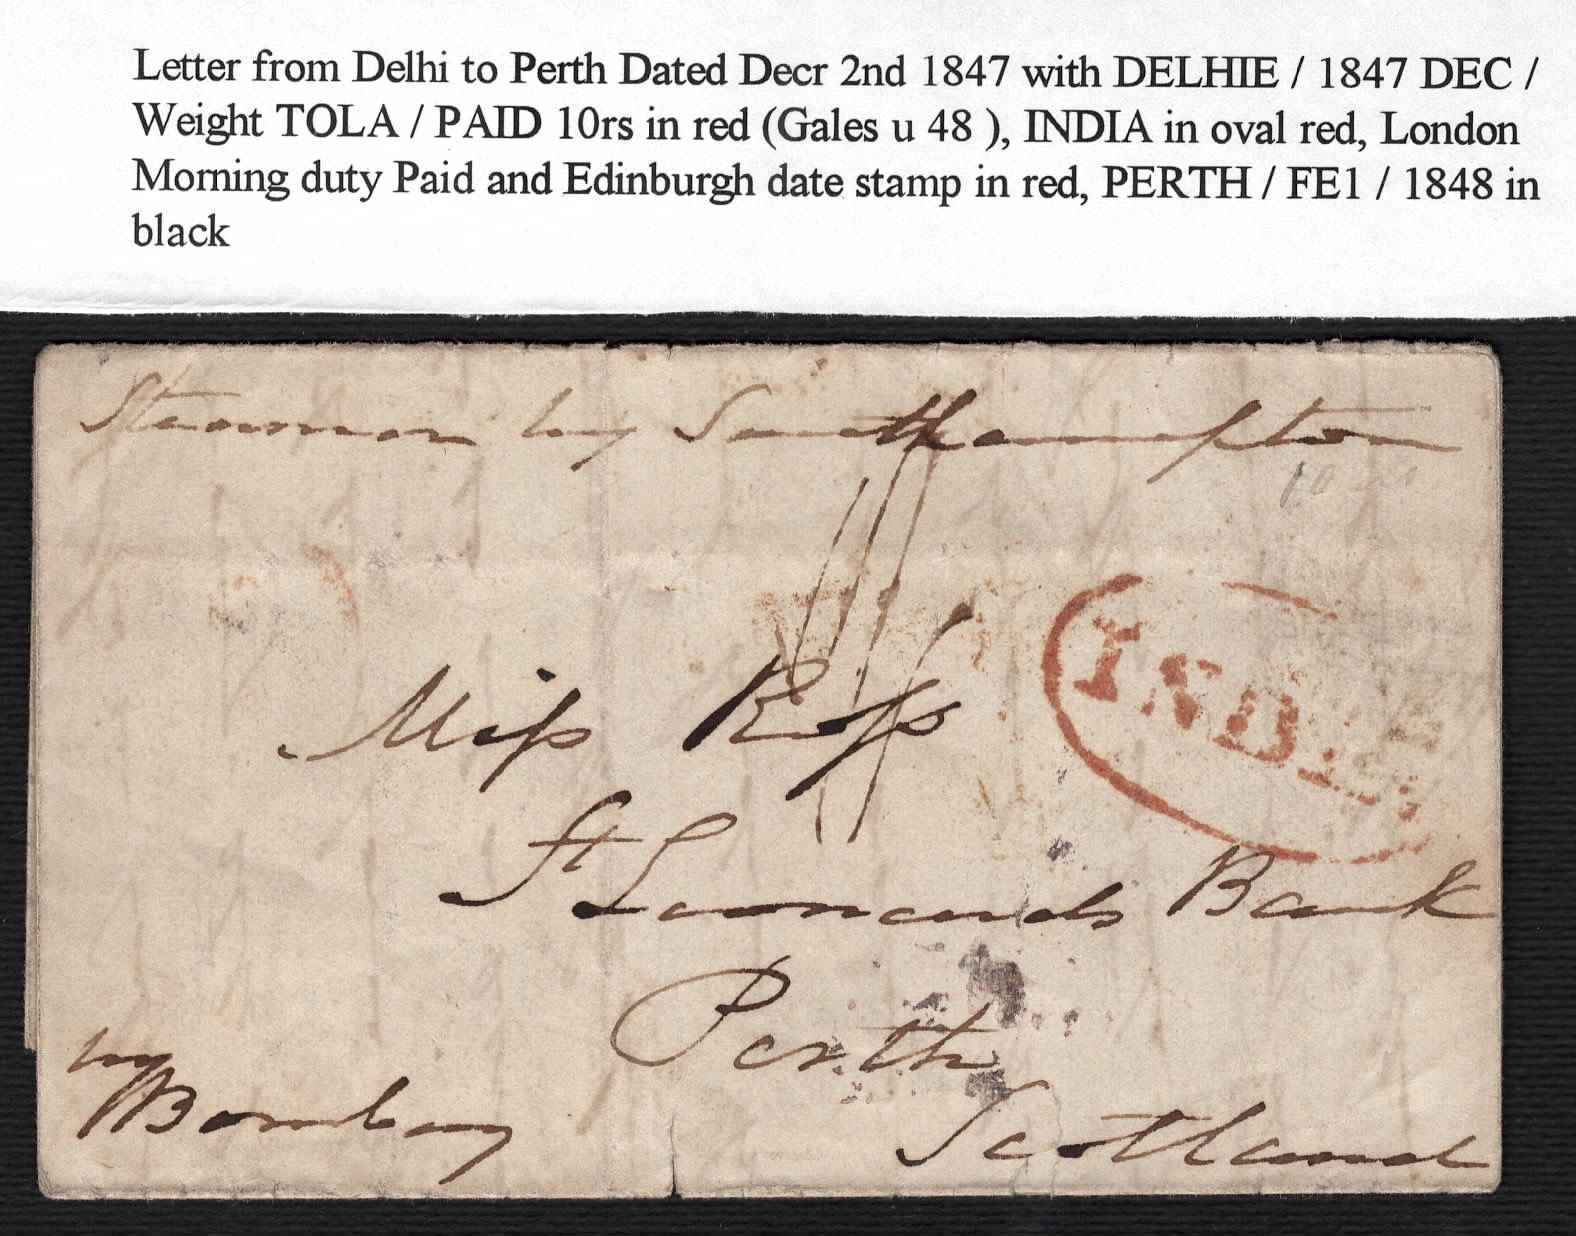 Letter from Delhi to Perth Dated Decr 2nd 1847 with DELHIE / 1847 DEC /
Weight TOLA / PAID 10rs in red (Gales u 48 ), INDIA in oval red, London
Morning duty Paid and Edinburgh date stamp in red, PERTH / FE1 / 1848 in
black
Steamer by Southampton
INDIA
Miss Ross
St Leonards Bank
Perth
by
Bombay
Scotland